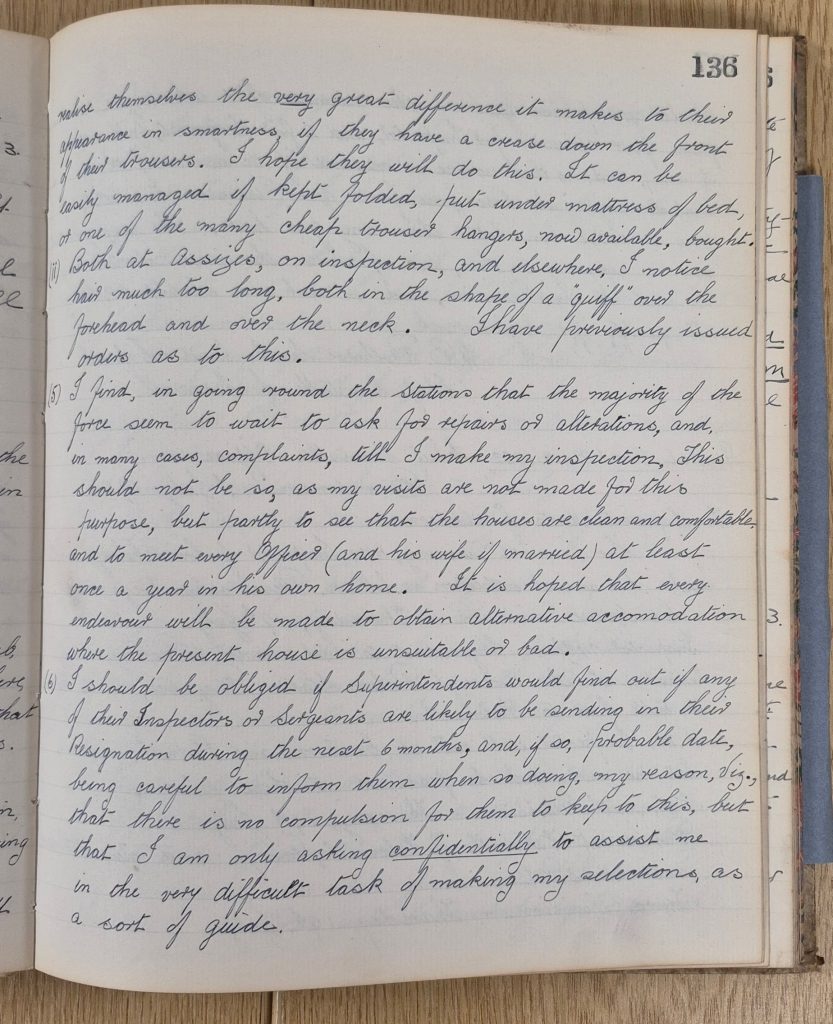 136
realise themselves the very great difference it makes to their
appearance in smartness, if they have a crease down the front
of their trousers. I hope they will do this. It can be
easily managed if kept folded, put under mattress of bed,
or one of the many cheap trouser hangers, now available, bought.
(ii) Both at Assizes, on inspection, and elsewhere, I notice
hair much too long, both in the shape of a "quiff" over the
forehead and over the neck. I have previously issued
orders as to this.
(5) I find, in going round the Stations that the majority of the
force seem to wait to ask for repairs or alterations, and,
in many cases, complaints, till I make my inspection. This
should not be so, as my visits are not made for this
purpose, but partly to see that the houses are clean and comfortable,
and to meet every Officer (and his wife if married) at least
once a year in his own home. It is hoped that every
endeavour will be made to obtain alternative accomodation
where the present house is unsuitable or bad.
(6) I should be obliged if Superintendents would find out if any
of their Inspectors or Sergeants are likely to be sending in their
Resignation during the next 6 months, and, if so, probable date,
being careful to inform them when so doing, my reason, Viz.,
that there is no compulsion for them to keep to this, but
that I am only asking confidentially to assist me
in the very difficult task of making my selections, as
a sort of guide.